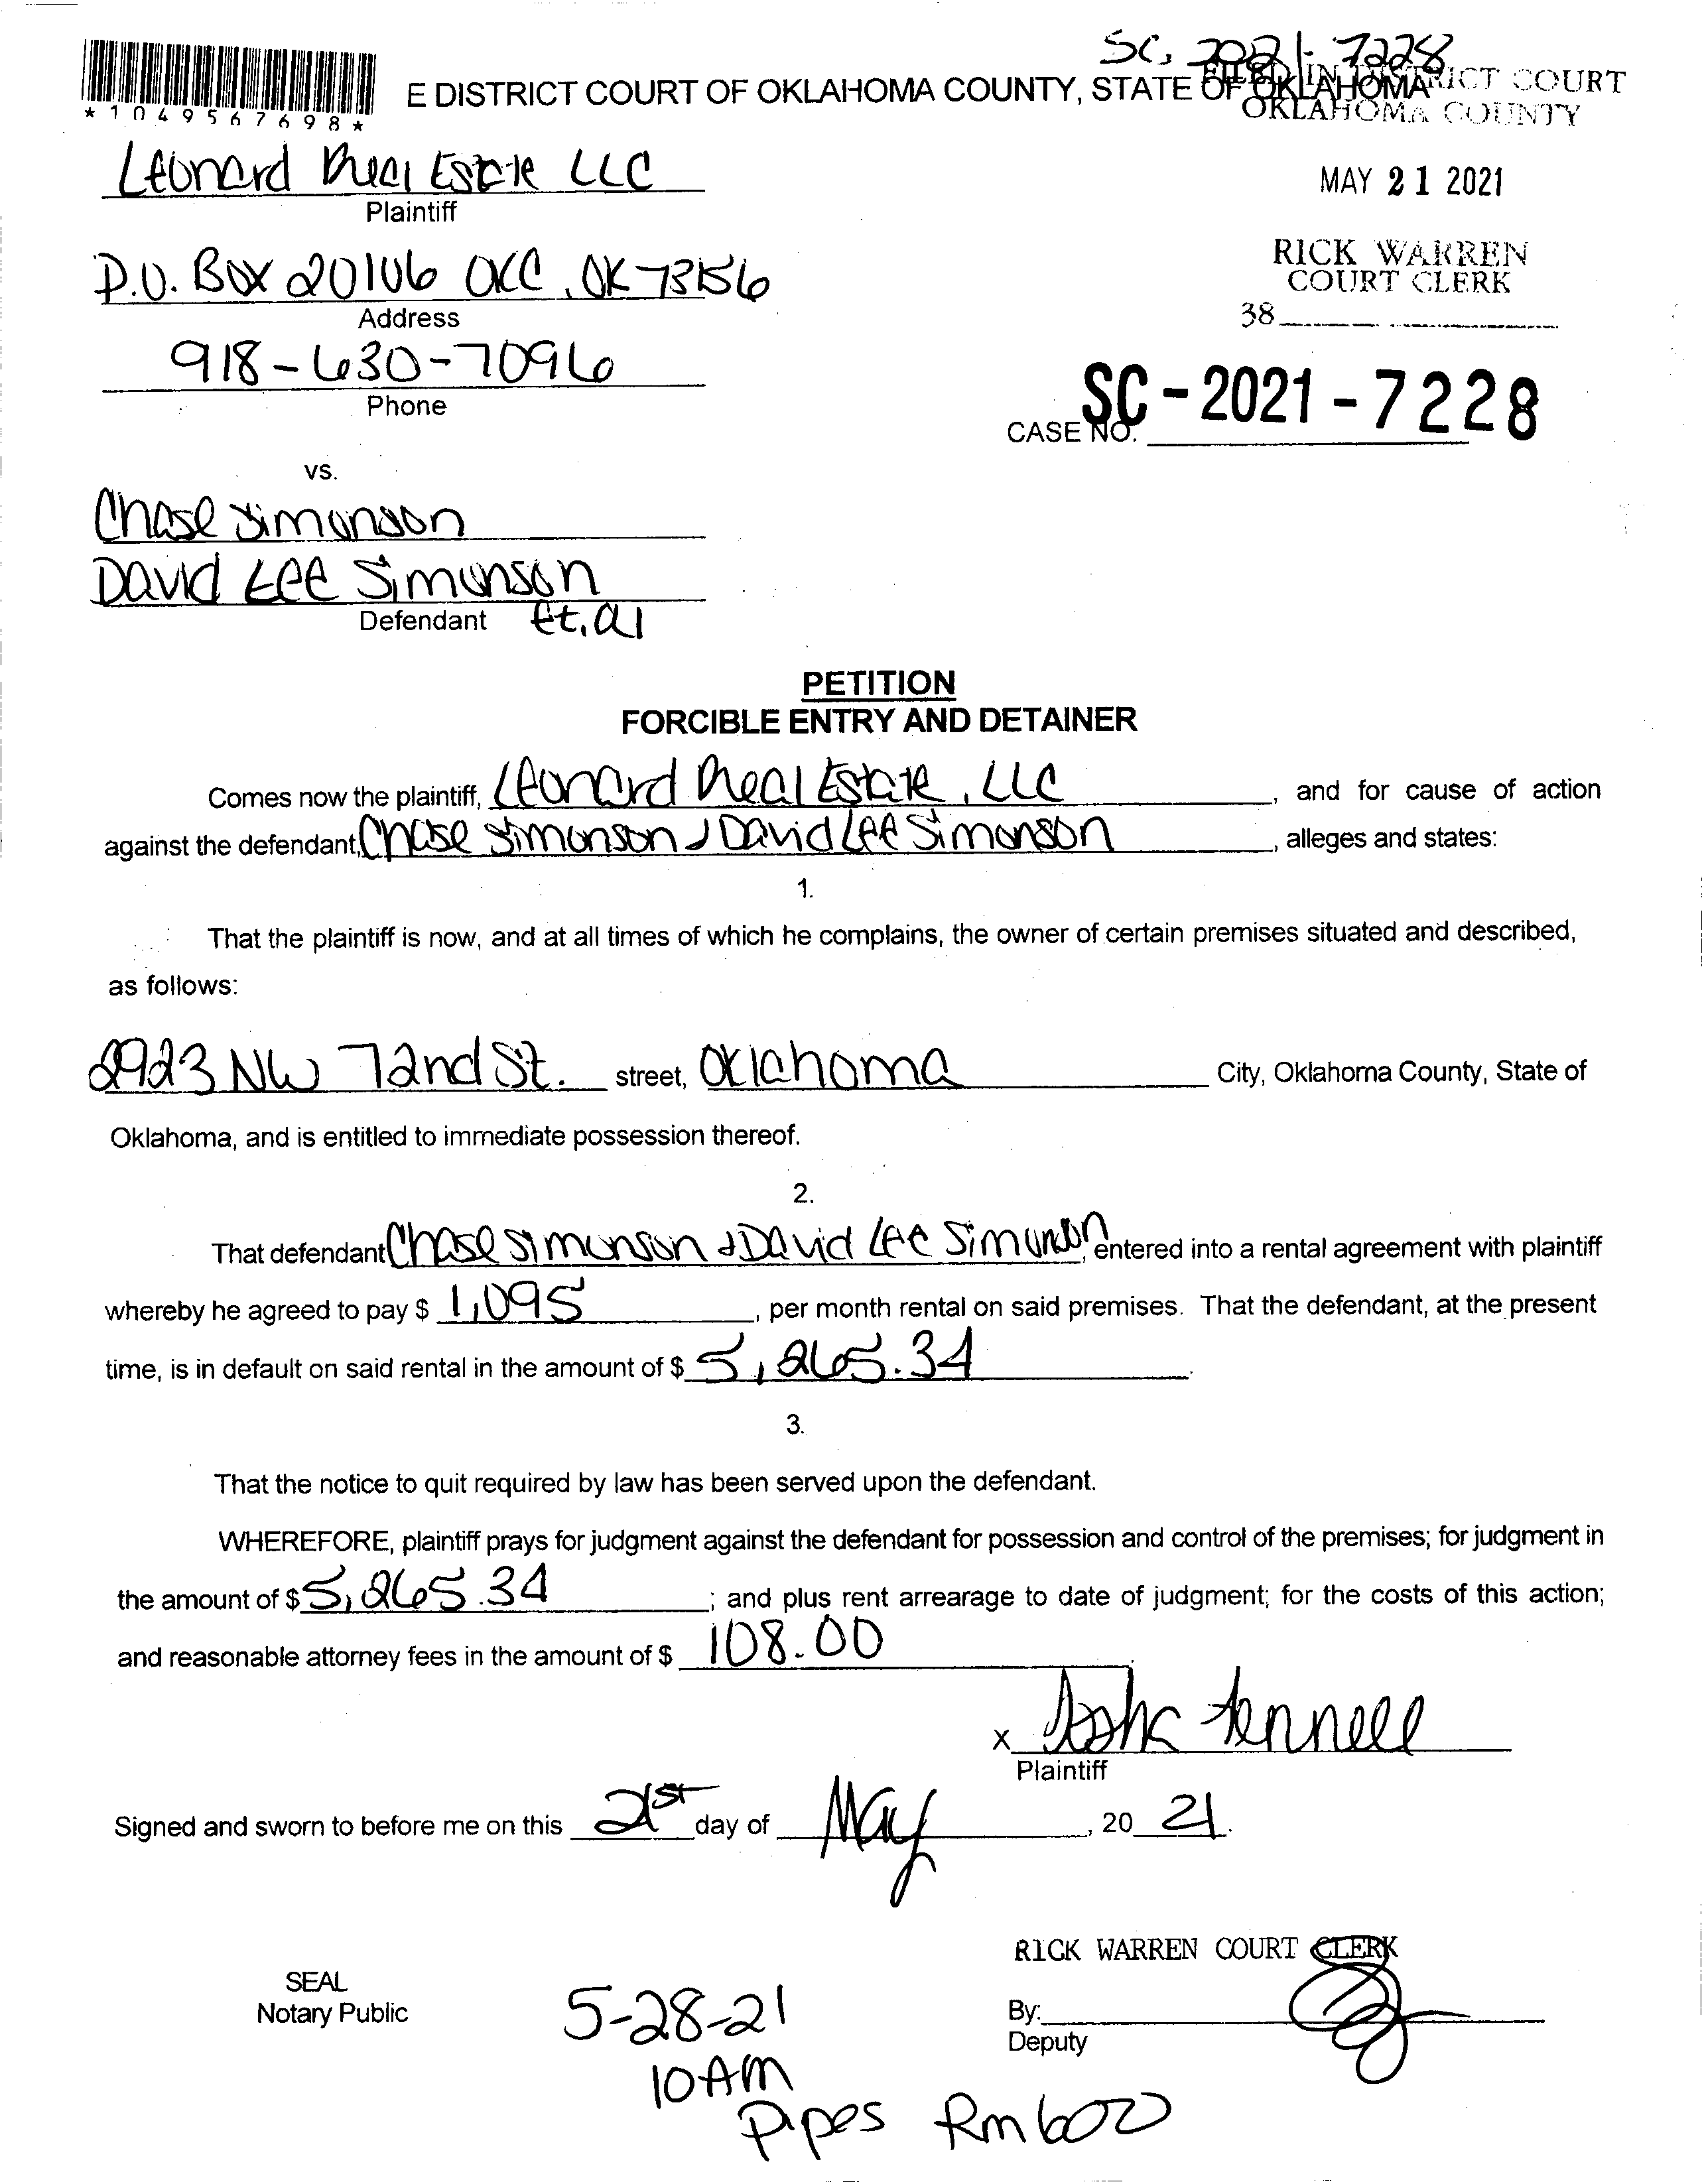 SC. 2021-7228
E DISTRICT COURT OF OKLAHOMA COUNTY, STATE OF OKLAHOMA
FILED IN DISTRICT COURT
OKLAHOMA COUNTY
*1049567698*
Leonard Real Estate LLC
Plaintiff
MAY 21 2021
P.O. Box 20106 OKC, OK 73156
Address
RICK WARREN
COURT CLERK
38
918-630-7096
Phone
CASE NO. SC-2021-7228
vs.
Chase Simonson
David Lee Simonson
Defendant et.al
PETITION
FORCIBLE ENTRY AND DETAINER
Comes now the plaintiff, Leonard Real Estate, LLC, and for cause of action
against the defendant, Chase Simonson & David Lee Simonson, alleges and states:
1.
That the plaintiff is now, and at all times of which he complains, the owner of certain premises situated and described,
as follows:
2923 NW 72nd St. street, Oklahoma City, Oklahoma County, State of
Oklahoma, and is entitled to immediate possession thereof.
2.
That defendant Chase Simonson & David Lee Simonson, entered into a rental agreement with plaintiff
whereby he agreed to pay $ 1,095, per month rental on said premises. That the defendant, at the present
time, is in default on said rental in the amount of $ 5,265.34.
3.
That the notice to quit required by law has been served upon the defendant.
WHEREFORE, plaintiff prays for judgment against the defendant for possession and control of the premises; for judgment in
the amount of $ 5,265.34; and plus rent arrearage to date of judgment; for the costs of this action;
and reasonable attorney fees in the amount of $ 108.00.
X
Plaintiff
Signed and sworn to before me on this 21st day of May, 20 21.
RICK WARREN COURT CLERK
SEAL
Notary Public
By:
Deputy
5-28-21
10 AM
Pipes Rm 600